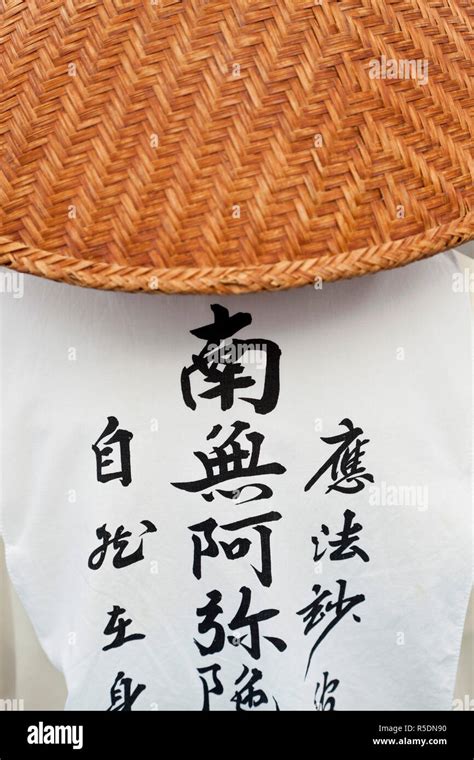 應法妙
南無阿弥陀
自然在身
alamy
Image ID: R5DN90
www.alamy.com